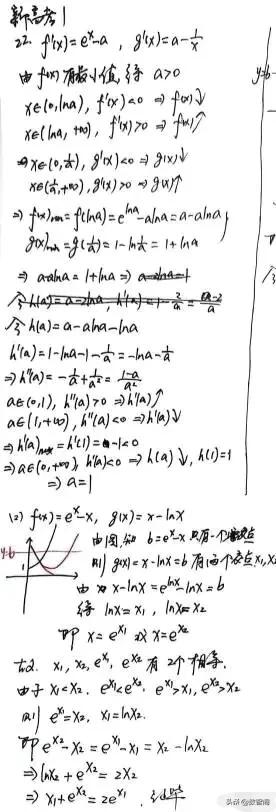 新高考1
22. f'(x)=e^x-a , g'(x)=a-1/x
由f(x)有最小值, 得 a>0
x∈(0,lna), f'(x)<0 ⇒ f(x)↓
x∈(lna,+∞), f'(x)>0 ⇒ f(x)↑
x∈(0,1/a), g'(x)<0 ⇒ g(x)↓
x∈(1/a,+∞), g'(x)>0 ⇒ g(x)↑
⇒ f(x)min=f(lna)=e^lna-alna=a-alna
g(x)min=g(1/a)=1-ln1/a=1+lna
⇒ a-alna=1+lna ⇒
令 h(a)=a-alna-lna
h'(a)=1-lna-1-1/a=-lna-1/a
⇒h''(a)=-1/a+1/a²=(1-a)/a²
a∈(0,1), h''(a)>0 ⇒h'(a)↑
a∈(1,+∞), h''(a)<0 ⇒h'(a)↓
⇒h'(a)max=h'(1)=-1<0
⇒a∈(0,+∞), h'(a)<0 ⇒ h(a)↓, h(1)=1
⇒ a=1
(2) f(x)=e^x-x, g(x)=x-lnx
y=b
由图知 b=e^x-x 只有一个
则 g(x)=x-lnx=b 有两个交点x₁,x₂
由 x-lnx=e^lnx-lnx=b
得 lnx=x₁, lnx=x₂
即 x=e^x₁ 或 x=e^x₂
x₁, x₂, e^x₁, e^x₂ 有2个相等.
由于 x₁<x₂, e^x₁<e^x₂, e^x₁>x₁, e^x₂>x₂
则 e^x₁=x₂, x₁=lnx₂.
即 e^x₂-x₂=e^x₁-x₁=x₂-lnx₂
⇒lnx₂+e^x₂=2x₂
⇒ x₁+e^x₂=2e^x₁, 证毕
y=b
头条@数智简